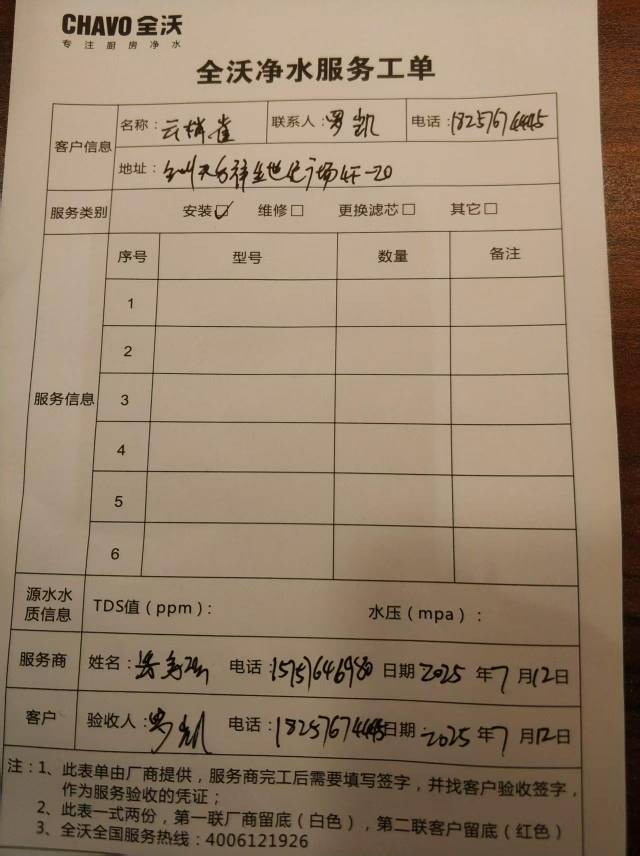 CHAVO 全沃
专注厨房净水
全沃净水服务工单
客户信息 名称：云梢雀 联系人：罗凯 电话：18257674445
地址：天台祥生世纪广场4F-20
服务类别 安装☑ 维修□ 更换滤芯□ 其它□
服务信息 序号 型号 数量 备注
1
2
3
4
5
6
源水水质信息 TDS值（ppm）： 水压（mpa）：
服务商 姓名： 电话：15757646980 日期：2025年7月12日
客户 验收人：罗凯 电话：18257674445 日期：2025年7月12日
注：1、此表单由厂商提供，服务商完工后需要填写签字，并找客户验收签字，
作为服务验收的凭证；
2、此表一式两份，第一联厂商留底（白色），第二联客户留底（红色）
3、全沃全国服务热线：4006121926